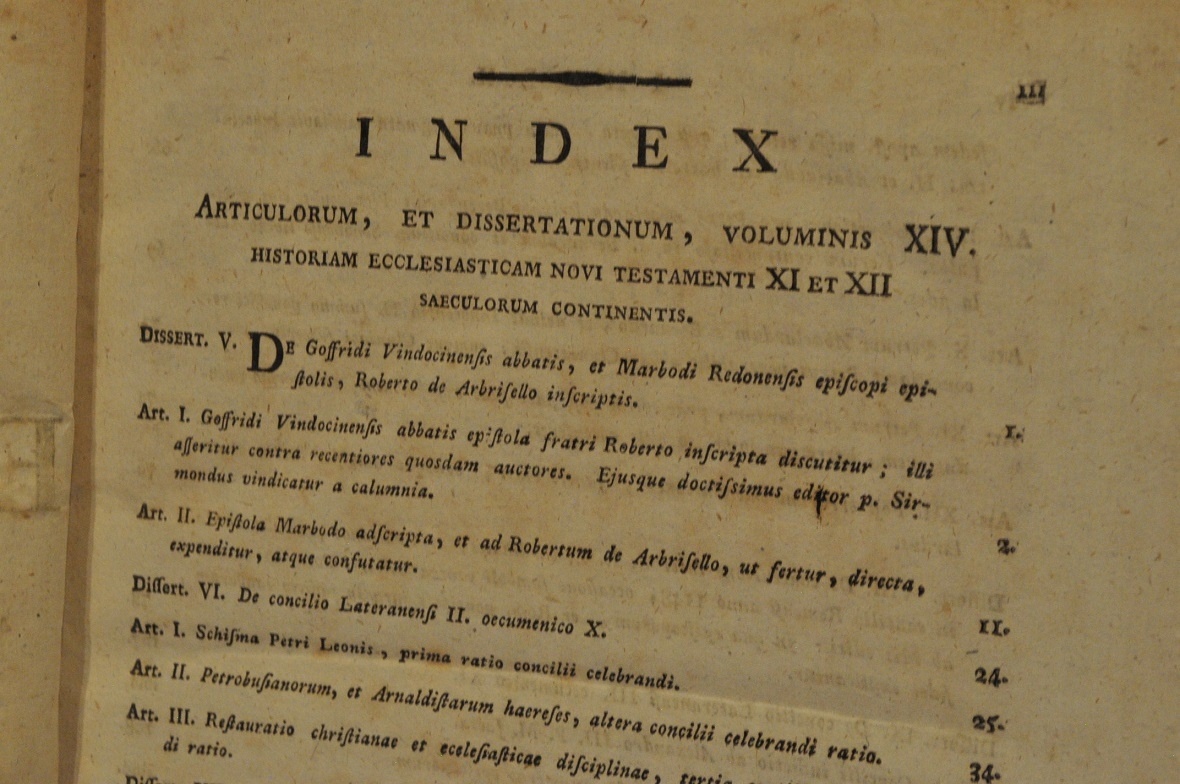 III
INDEX
ARTICULORUM, ET DISSERTATIONUM, VOLUMINIS XIV.
HISTORIAM ECCLESIASTICAM NOVI TESTAMENTI XI ET XII
SAECULORUM CONTINENTIS.
DISSERT. V. DE Goffridi Vindocinenſis abbatis, et Marbodi Redonenſis epiſcopi epi-
ſtolis, Roberto de Arbriſello inſcriptis. 1.
Art. I. Goffridi Vindocinenſis abbatis epiſtola fratri Roberto inſcripta discutitur; illi
aſſeritur contra recentiores quosdam auctores. Ejusque doctiſsimus editor p. Sir-
mondus vindicatur a calumnia. 2.
Art. II. Epiſtola Marbodo adſcripta, et ad Robertum de Arbriſello, ut fertur, directa,
expenditur, atque confutatur. 11.
Diſſert. VI. De concilio Lateranenſi II. oecumenico X. 24.
Art. I. Schiſma Petri Leonis, prima ratio concilii celebrandi. 25.
Art. II. Petrobuſianorum, et Arnaldiſtarum haereſes, altera concilii celebrandi ratio. 34.
Art. III. Reſtauratio chriſtianae et eceleſiaſticae diſciplinae, tertia
di ratio.